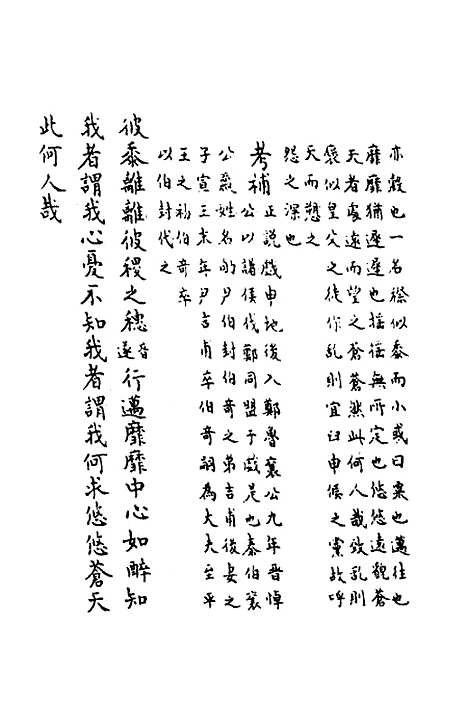 亦穀也一名穄似黍而小或曰粟也邁往也
靡靡猶遲遲也搖搖無所定也悠悠遠貌蒼
天者處遠而望之蒼蒼然此何人哉致亂則
褒似皇父之徒作亂則宜臼申侯之黨故呼
天而愬之
怨之深也
考補正說戲申地後入鄭魯襄公九年晉悼
公以諸侯伐鄭同盟于戲是也秦伯襄
公爲姓名的尹伯封伯奇之弟吉甫後妻之
子宣王末年尹吉甫卒伯奇嗣為大夫至平
王之初伯奇卒
以伯封代之
彼黍離離彼稷之穗音遂行邁靡靡中心如醉知
我者謂我心憂不知我者謂我何求悠悠蒼天
此何人哉